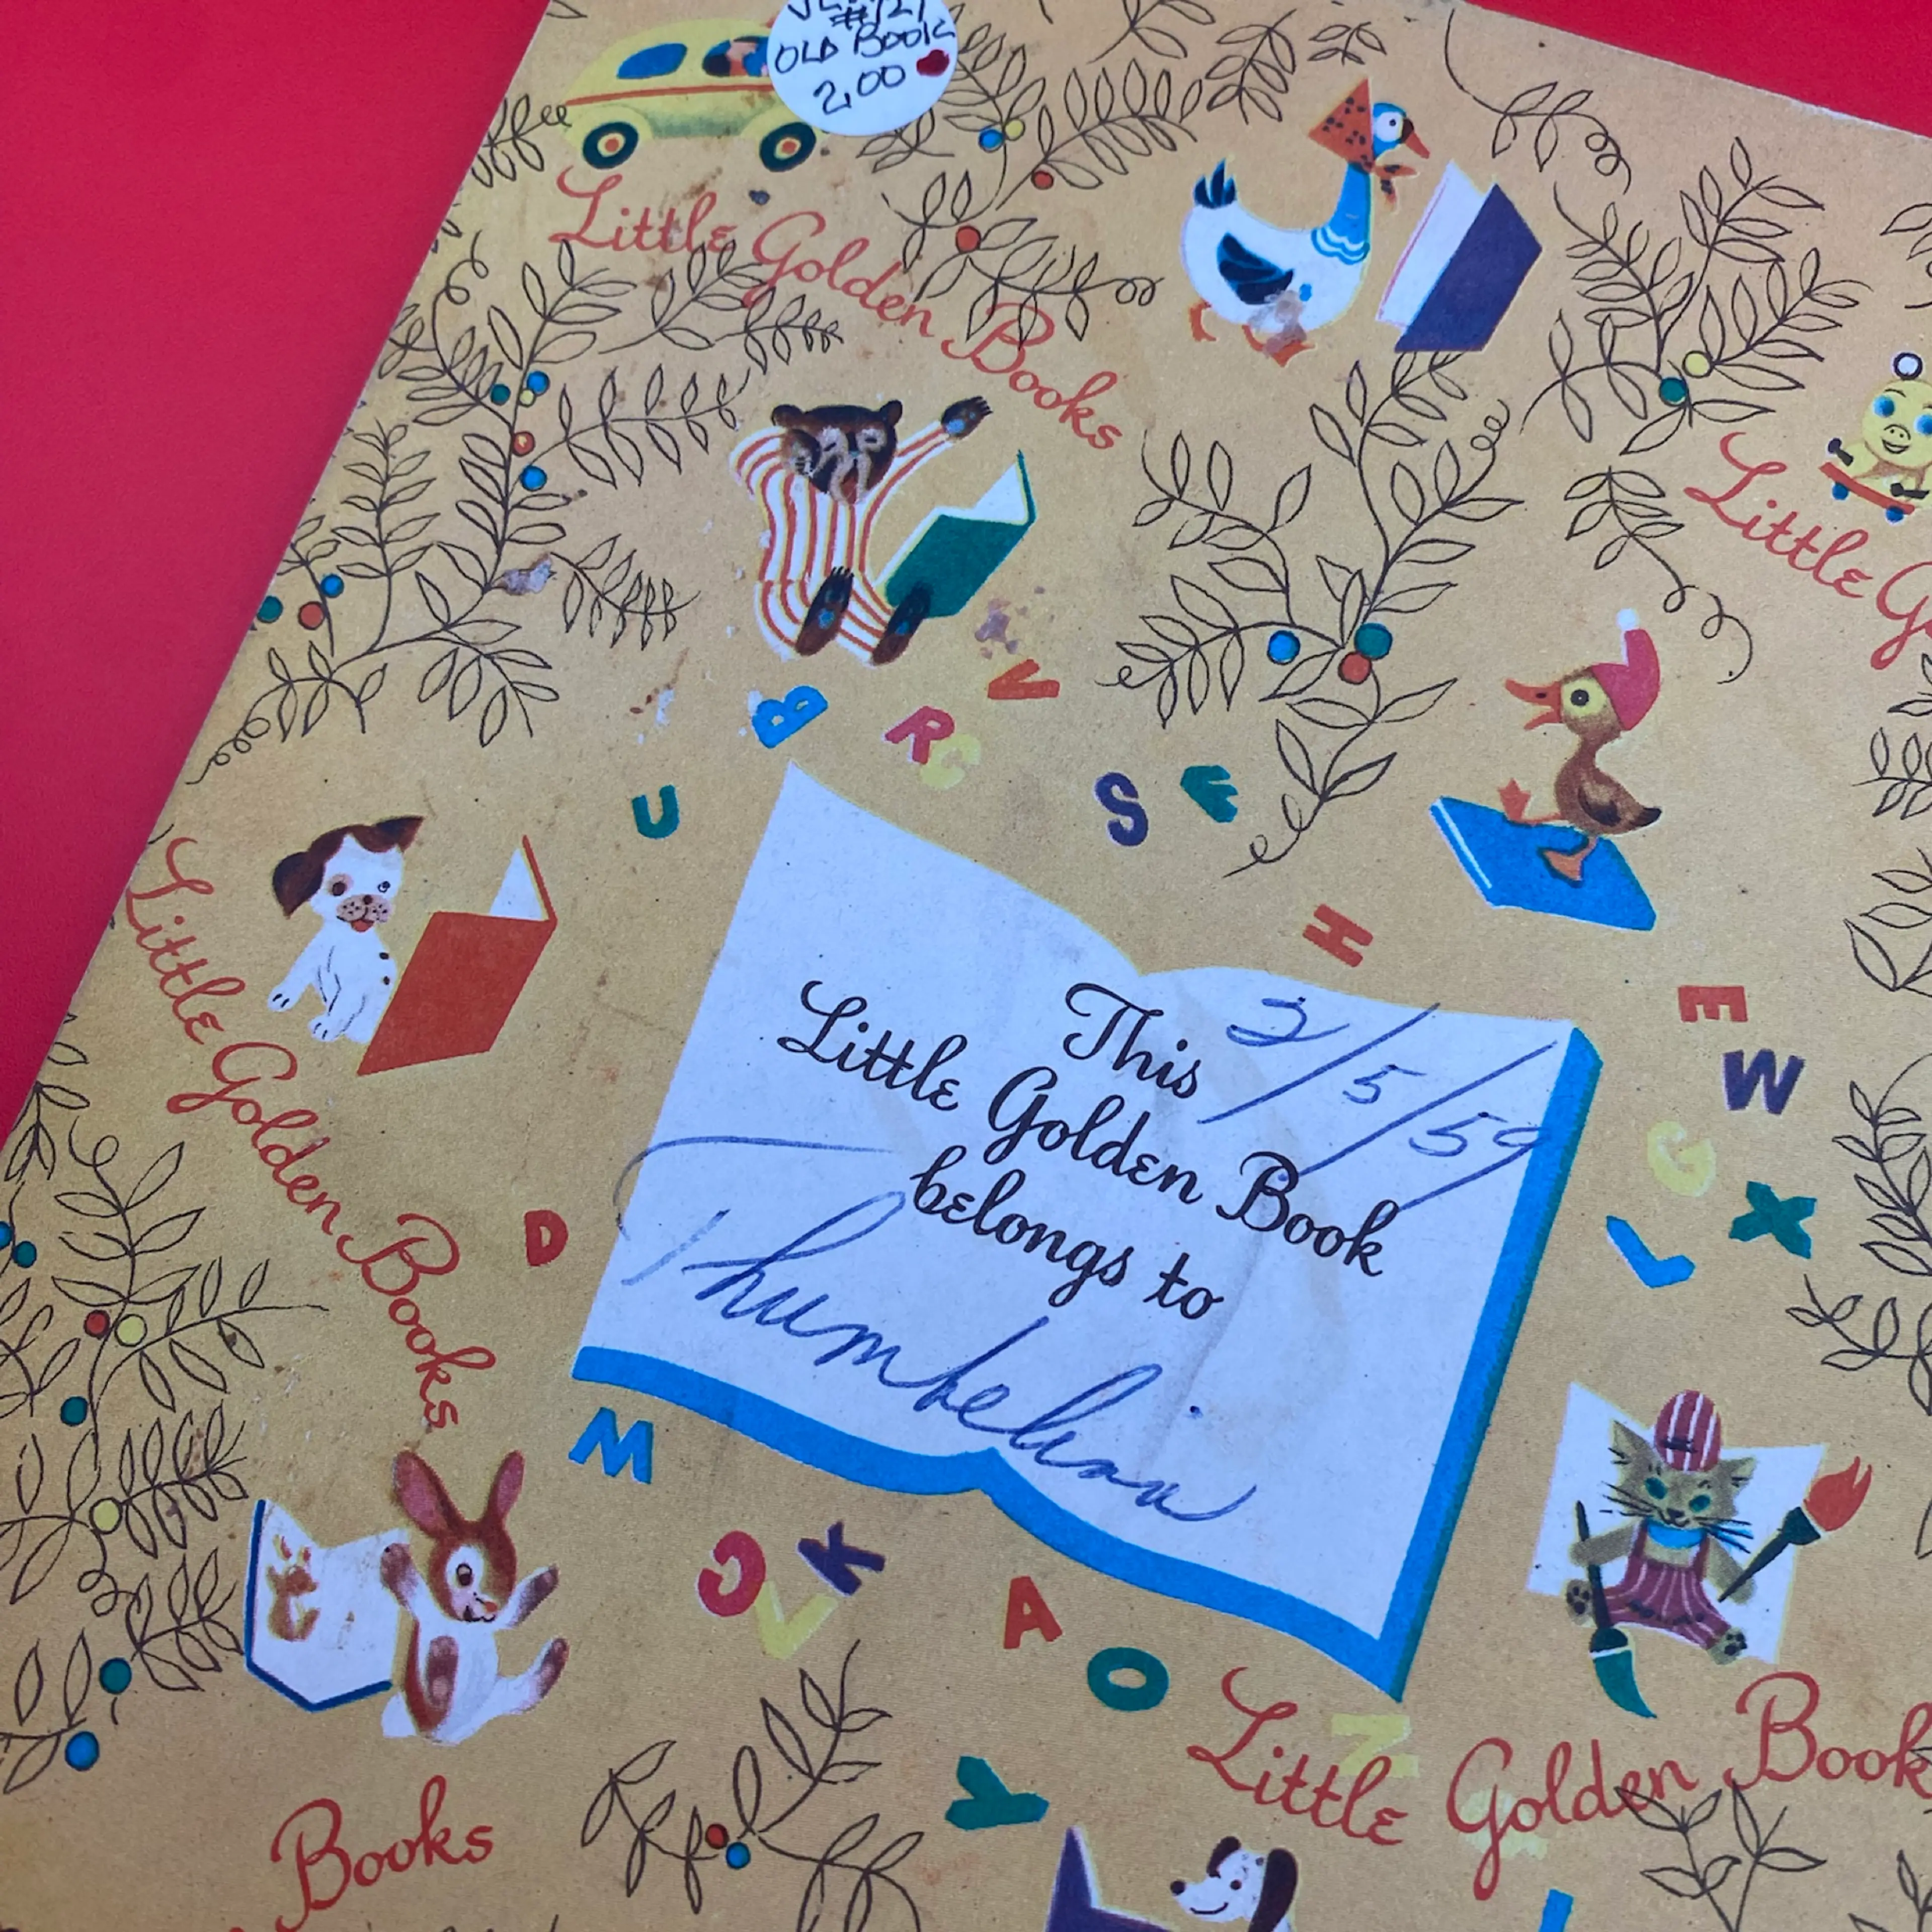 OLD BOOK
2.00
Little Golden Books
Little G
B
R
C
V
U
S
F
H
E
W
G
X
L
D
M
J
K
V
A
O
Z
Y
I
Little Golden Books
This
Little Golden Book
belongs to
2/5/59
Thumbelina
Little Golden Book
Books